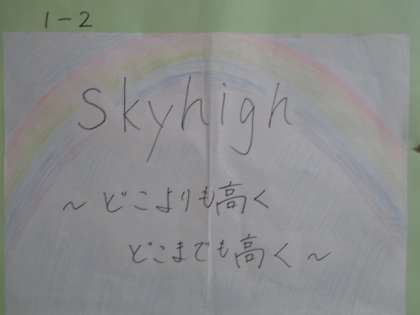 1-2
skyhigh
～どこよりも高く
どこまでも高く～